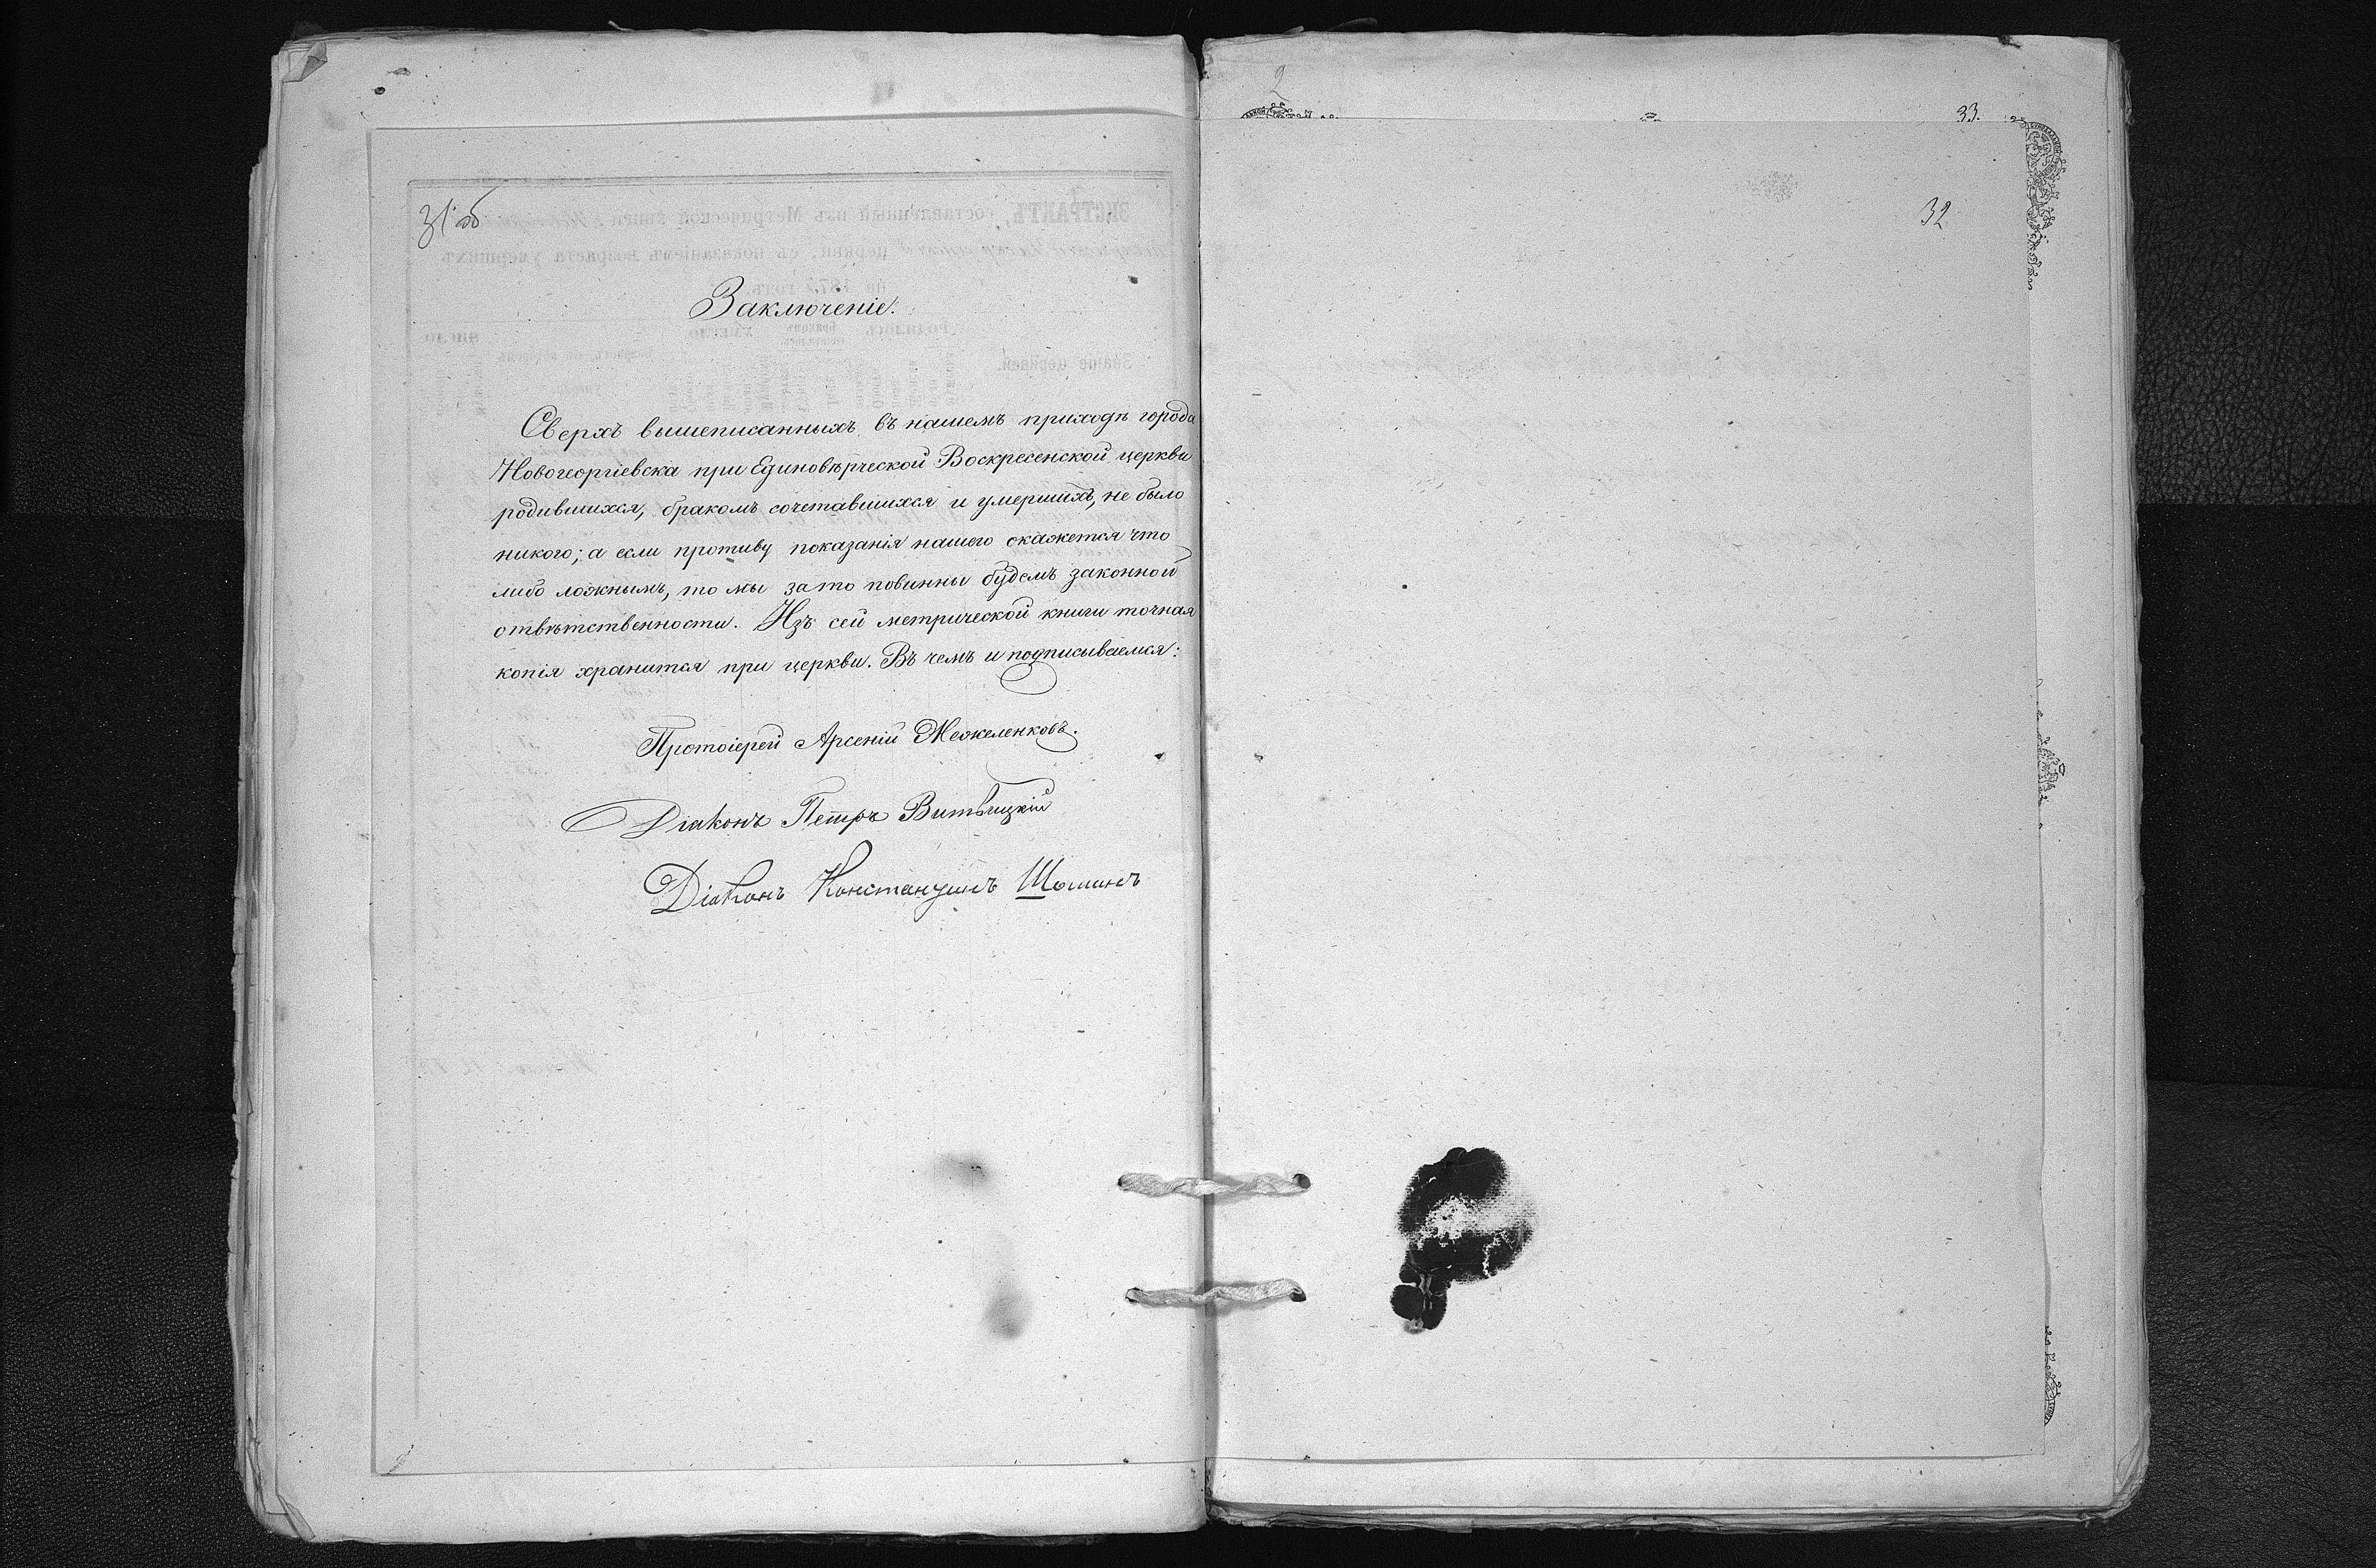 31 об
Заключеніе.
Сверхъ вышеписанныхъ въ нашемъ приходѣ города
Новогеоргіевска при Единовѣрческой Воскресенской церкви
родившихся, бракомъ сочетавшихся и умершихъ, не было
никого; а если противу показанія нашего окажется что
либо ложнымъ, то мы за то повинны будемъ законной
отвѣтственности. Изъ сей метрической книги точная
копія хранится при церкви. Въ чемъ и подписываемся:
Протоіерей Арсеній
Діаконъ Петръ Витвицкій
Діаконъ Константинъ
33.
32